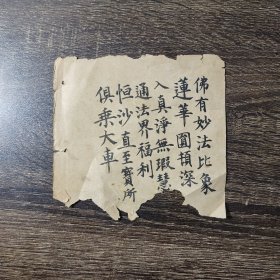 佛有妙法比象
蓮華圓頓深
入真淨無瑕慧
通法界福利
恒沙直至寳所
俱乗大車